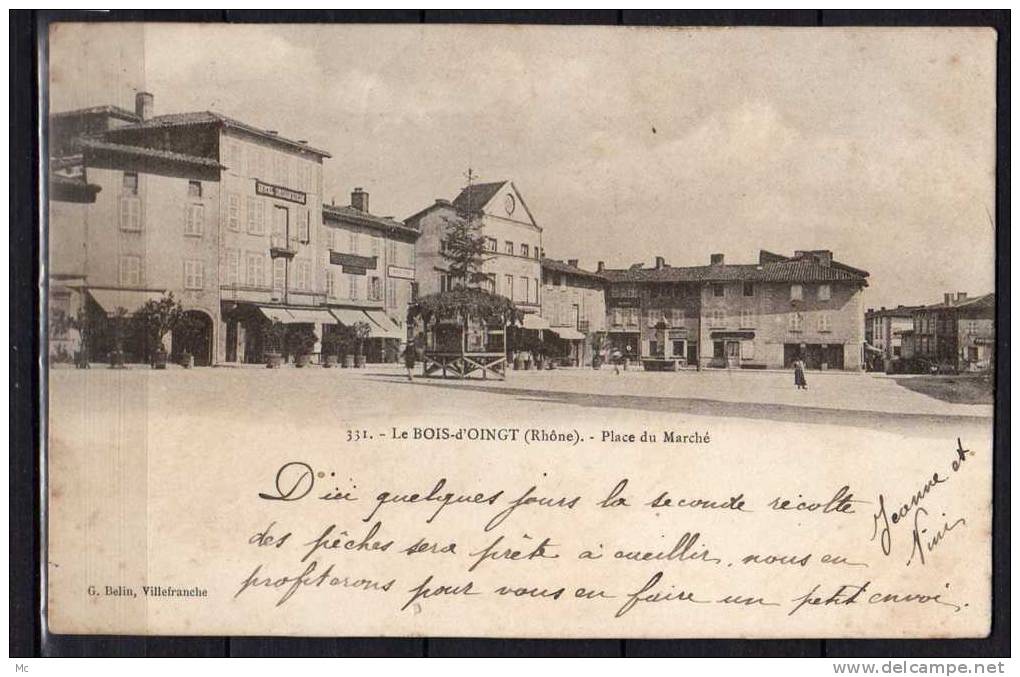 331. - Le BOIS-d'OINGT (Rhône). - Place du Marché
D'ici quelques jours la seconde récolte
des pêches sera prête à cueillir, nous en
profiterons pour vous en faire un petit envoi.
Jeanne et
Nini
G. Belin, Villefranche
Mc
www.delcampe.net